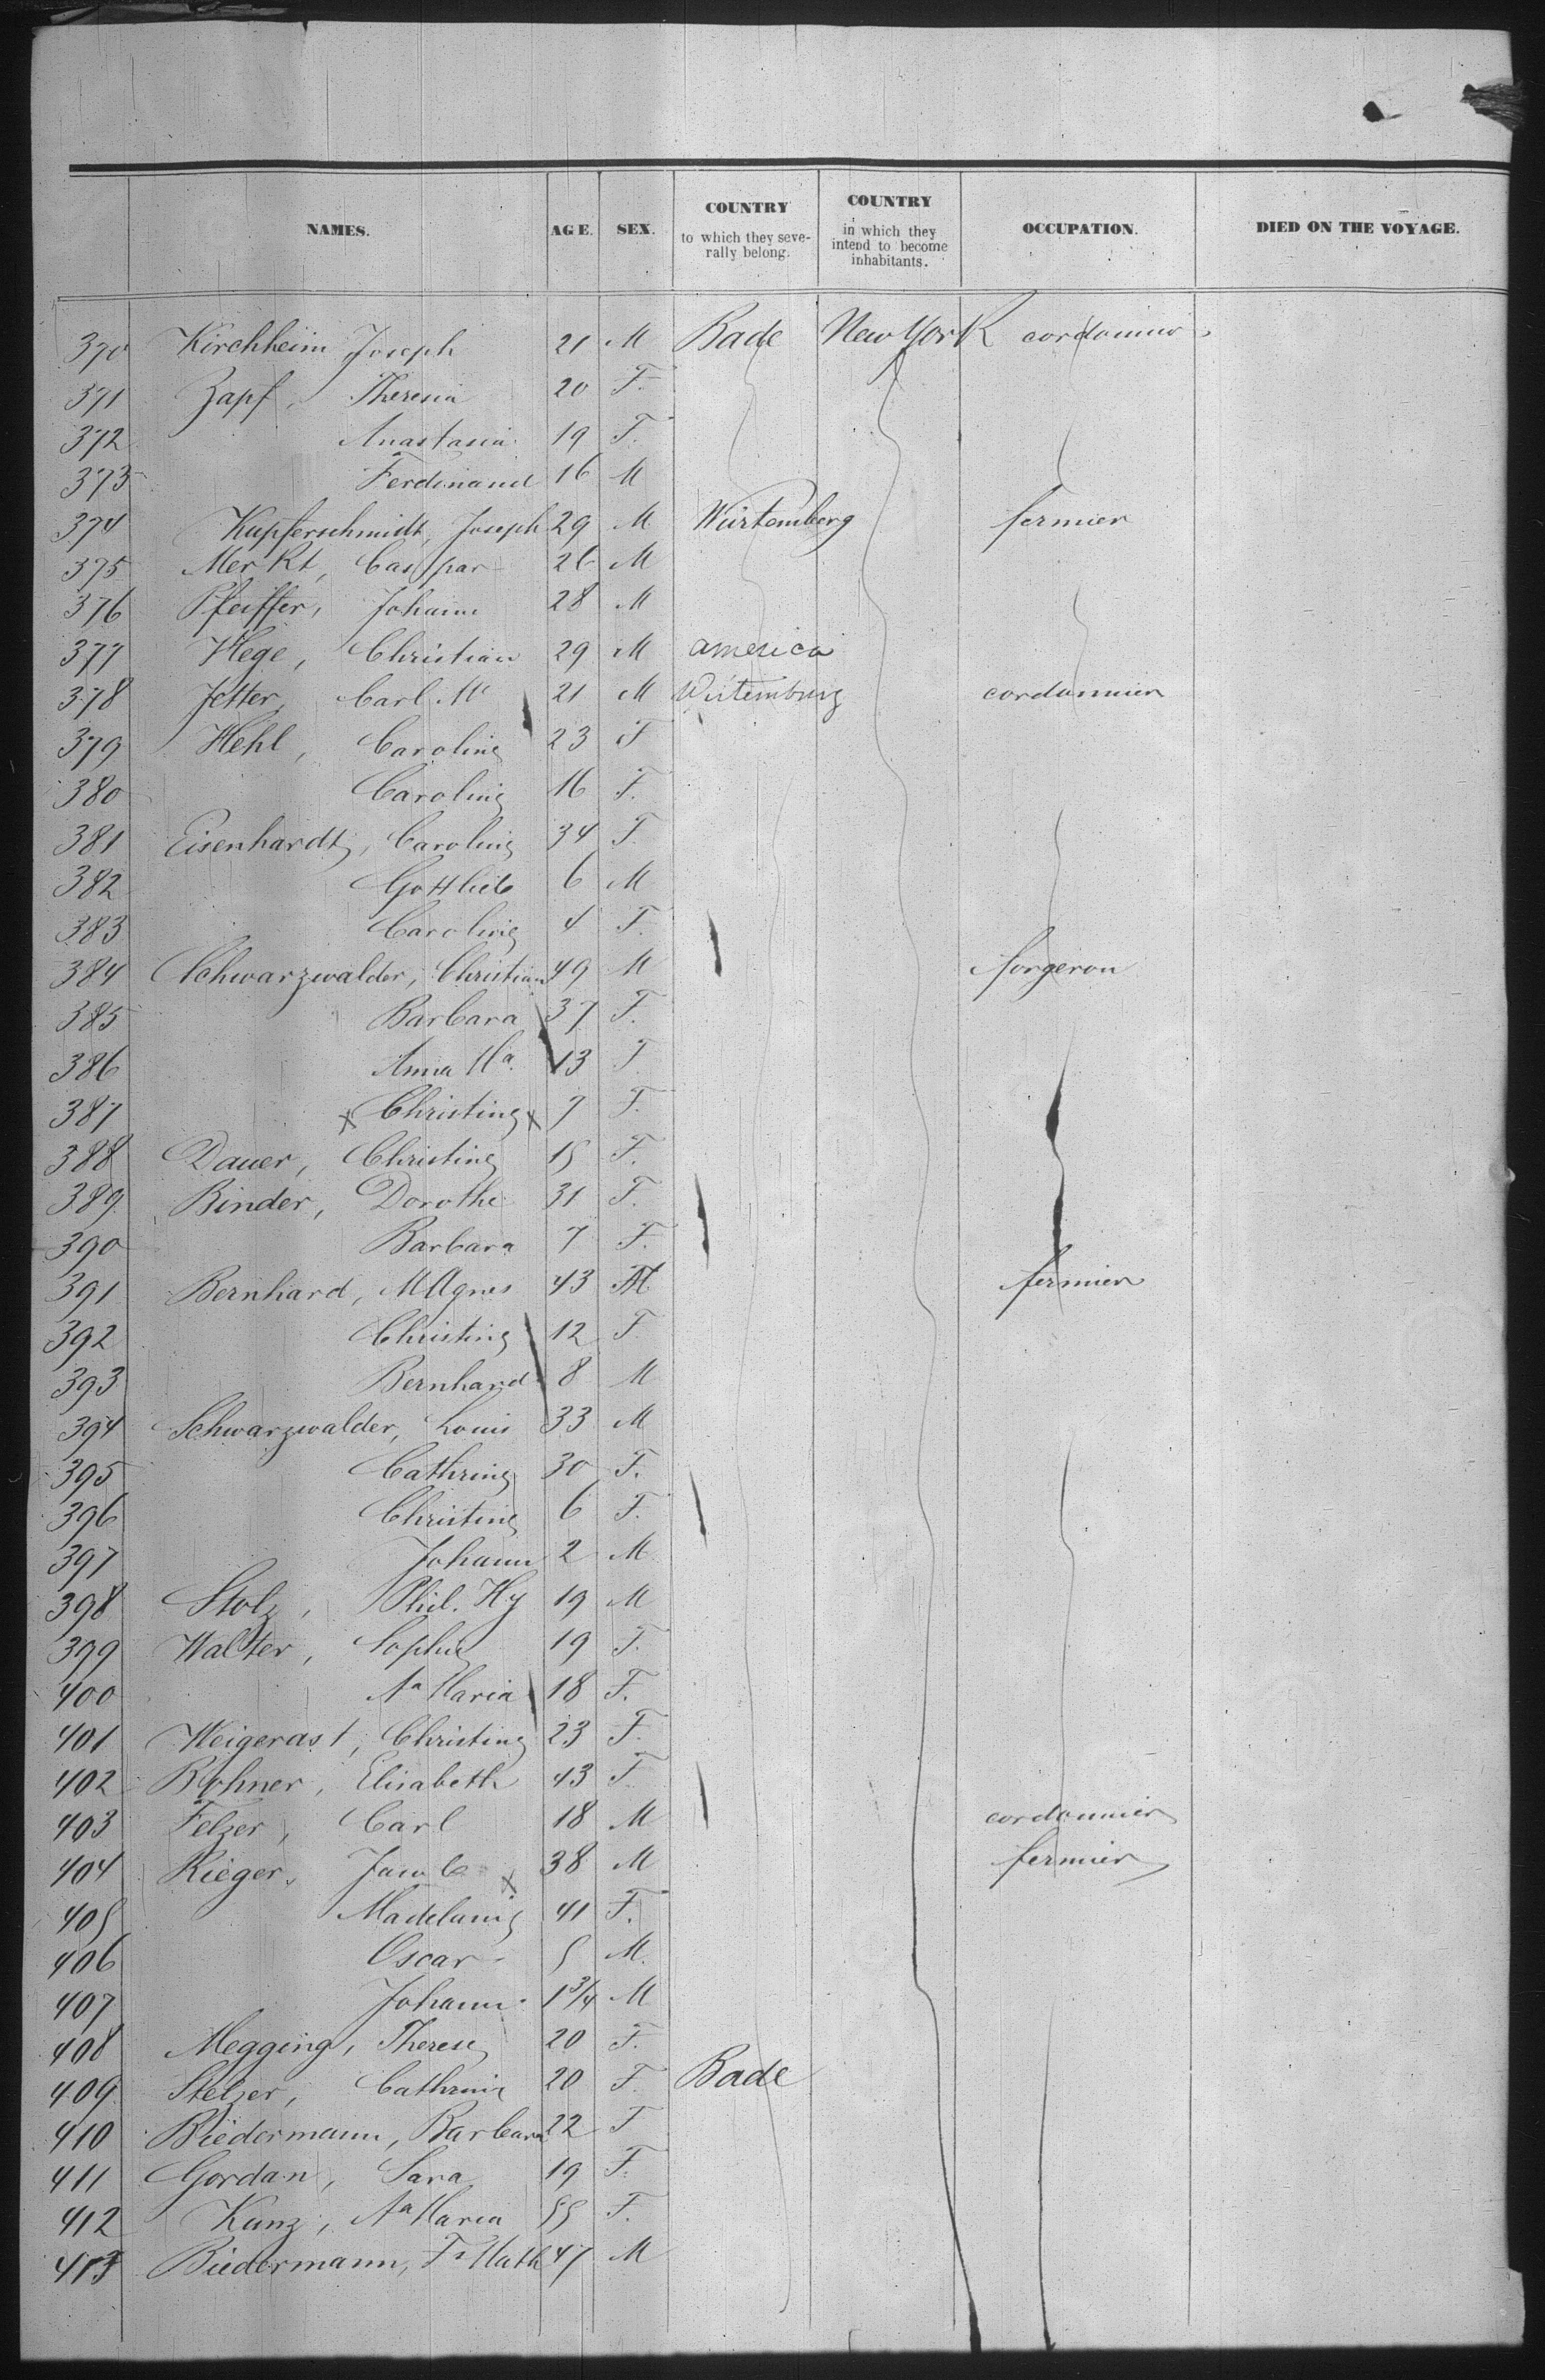 NAMES. AGE. SEX. COUNTRY to which they severally belong. COUNTRY in which they intend to become inhabitants. OCCUPATION. DIED ON THE VOYAGE.
370 Kirchheim Joseph 21 M Bade New York cordonnier
371 Zapf, Theresia 20 F.
372 Anastasia 19 F.
373 Ferdinand 16 M
374 Kupferschmidt, Joseph 29 M Würtemberg fermier
375 Merkt, Caspar 26 M
376 Pfeiffer, Johann 28 M
377 Hege, Christian 29 M america
378 Jetter, Carl 21 M Würtemburg cordonnier
379 Hehl, Caroline 23 F
380 Caroline 16 F.
381 Eisenhardt, Caroline 34 F
382 Gottlieb 6 M
383 Caroline 4 F.
384 Schwarzwalder, Christian 49 M forgeron
385 Barbara 37 F.
386 Anna Ma 13 F
387 x Christine x 7 F.
388 Dauer, Christine 15 F.
389 Binder, Dorothe 31 F.
390 Barbara 7 F.
391 Bernhard, M Agnes 43 fermier
392 Christine 12 F
393 Bernhard 8 M
394 Schwarzwalder, Louis 33 M
395 Cathrine 30 F.
396 Christine 6 F.
397 Johann 2 M
398 Stolz, Phil. Hy 19 M
399 Walter, Sophie 19 F.
400 Aa Maria 18 F.
401 Weigerast, Christine 23 F.
402 Bohner, Elisabeth 43 F
403 Felzer, Carl 18 M cordonnier
404 Rieger, Jacob x 38 M fermier
405 Madelaine 41 F.
406 Oscar 5 M.
407 Johann 1 3/4 M
408 Megging, Therese 20 F.
409 Stelzer, Cathrine 20 F. Bade
410 Biedermann, Barbara 22 F
411 Gordan, Sara 19 F.
412 Kunz, Aa Maria 55 F.
413 Biedermann, Fs Math 47 M